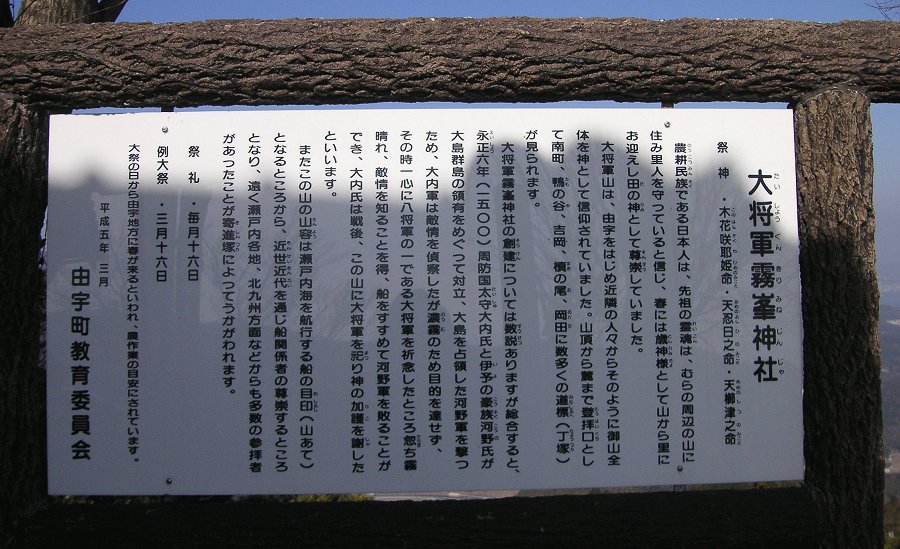 大将軍霧峯神社
祭神・木花咲耶姫命・天忍日之命・天櫛津之命
農耕民族である日本人は、先祖の霊魂は、むらの周辺の山に
住み里人を守っていると信じ、春には歳神様として山から里に
お迎えし田の神として尊崇していました。
大将軍山は、由宇をはじめ近隣の人々からそのように御山全
体を神として信仰されていました。山頂から麓まで登拝口とし
て南町、鴨の谷、吉岡、槙の尾、岡田に数多くの道標（丁塚）
が見られます。
大将軍霧峯神社の創建については数説ありますが総合すると、
永正六年（一五〇〇）周防国太守大内氏と伊予の豪族河野氏が
大島群島の領有をめぐって対立、大島を占領した河野軍を撃つ
ため、大内軍は敵情を偵察したが濃霧のため目的を達せず、
その時一心に八将軍の一である大将軍を祈念したところ忽ち霧
晴れ、敵情を知ることを得、船をすすめて河野軍を敗ることが
でき、大内氏は戦後、この山に大将軍を祀り神の加護を謝した
といいます。
またこの山の山容は瀬戸内海を航行する船の目印（山あて）
となるところから、近世近代を通じ船関係者の尊崇するところ
となり、遠く瀬戸内各地、北九州方面などからも多数の参拝者
があったことが寄進塚によってうかがわれます。
祭礼・毎月十六日
例大祭・三月十六日
大祭の日から由宇地方に春が来るといわれ、農作業の目安にされています。
平成五年三月
由宇町教育委員会